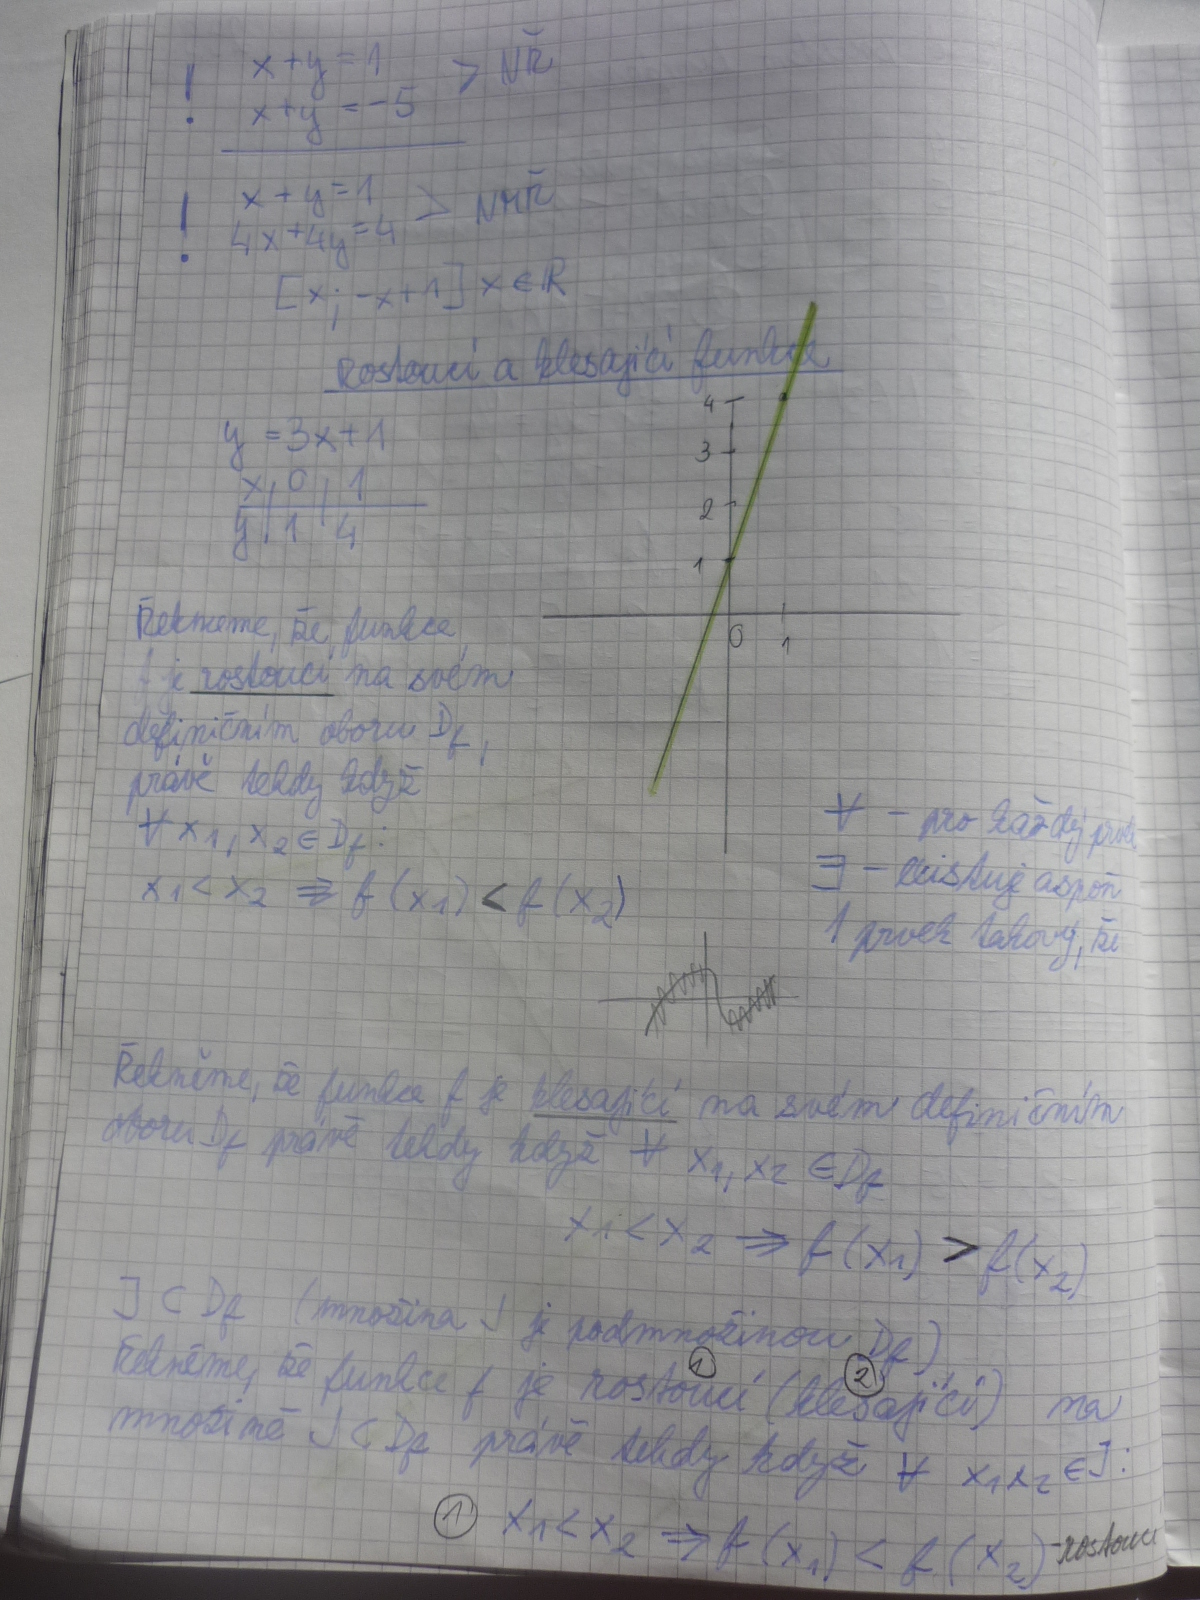 ! x+y=1 > NŘ
x+y=-5
! x+y=1 > NMŘ
4x+4y=4
[x; -x+1] x∈R
Rostoucí a klesající funkce
y=3x+1
x 0 1
y 1 4
4
3
2
1
0 1
Řekneme, že funkce
f je rostoucí na svém
definičním oboru Df,
právě tehdy když
∀ x1, x2 ∈ Df:
x1 < x2 ⇒ f(x1) < f(x2)
∀ - pro každý prvek
∃ - existuje aspoň
1 prvek takový, že
Řekněme, že funkce f je klesající na svém definičním
oboru Df právě tehdy když ∀ x1, x2 ∈ Df
x1 < x2 ⇒ f(x1) > f(x2)
J ⊂ Df (množina J je podmnožinou Df)
1 2
Řekněme, že funkce f je rostoucí (klesající) na
množině J ⊂ Df právě tehdy když ∀ x1 x2 ∈ J:
1 x1 < x2 ⇒ f(x1) < f(x2) - rostoucí